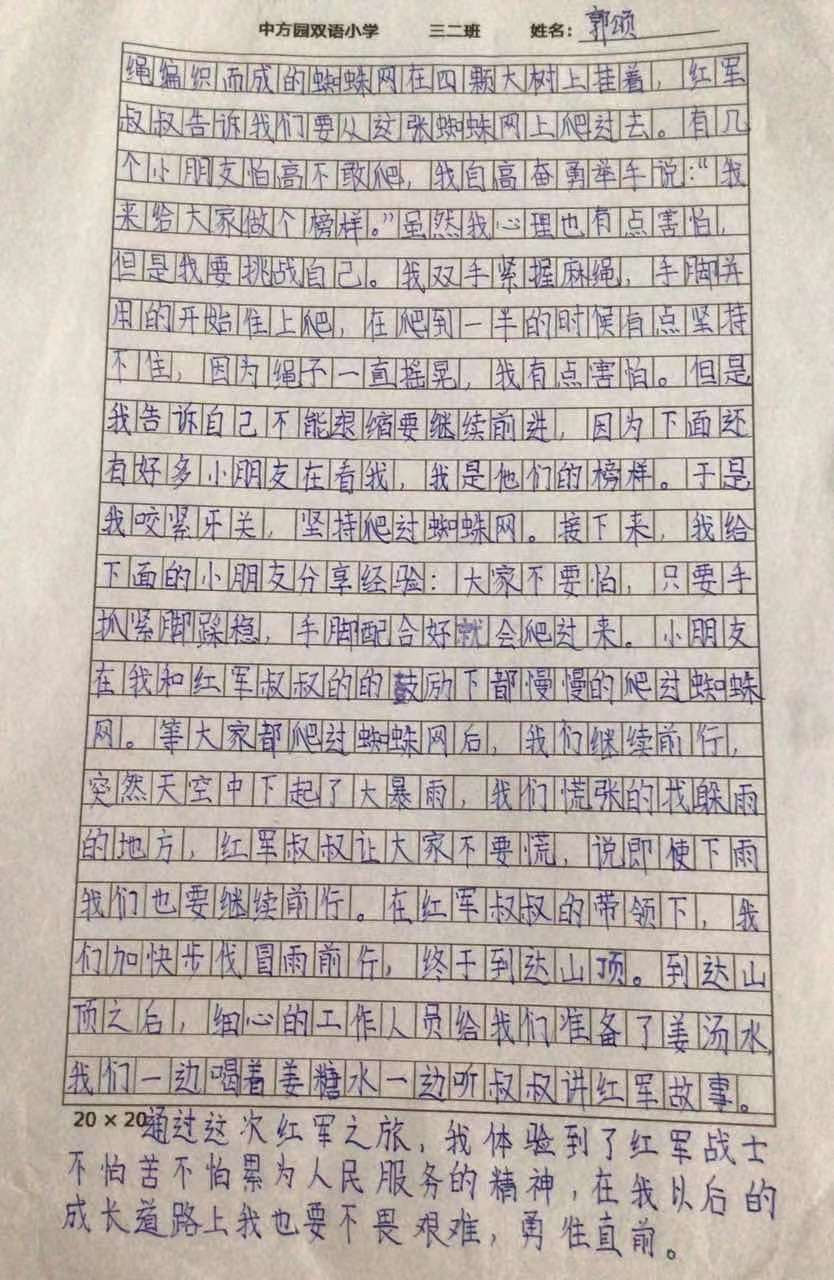 中方园双语小学 三二班 姓名：郭颂
绳编织而成的蜘蛛网在四颗大树上挂着，红军
叔叔告诉我们要从这张蜘蛛网上爬过去。有几
个小朋友怕高不敢爬，我自高奋勇举手说：“我
来给大家做个榜样。”虽然我心理也有点害怕，
但是我要挑战自己。我双手紧握麻绳，手脚并
用的开始住上爬，在爬到一半的时候有点坚持
不住，因为绳子一直摇晃，我有点害怕。但是
我告诉自己不能退缩要继续前进，因为下面还
有好多小朋友在看我，我是他们的榜样。于是
我咬紧牙关，坚持爬过蜘蛛网。接下来，我给
下面的小朋友分享经验：大家不要怕，只要手
抓紧脚踩稳，手脚配合好就会爬过来。小朋友
在我和红军叔叔的的鼓励下都慢慢的爬过蜘蛛
网。等大家都爬过蜘蛛网后，我们继续前行，
突然天空中下起了大暴雨，我们慌张的找躲雨
的地方，红军叔叔让大家不要慌，说即使下雨
我们也要继续前行。在红军叔叔的带领下，我
们加快步伐冒雨前行，终于到达山顶。到达山
顶之后，细心的工作人员给我们准备了姜汤水，
我们一边喝着姜糖水一边听叔叔讲红军故事。
20×20通过这次红军之旅，我体验到了红军战士
不怕苦不怕累为人民服务的精神，在我以后的
成长道路上我也要不畏艰难，勇往直前。